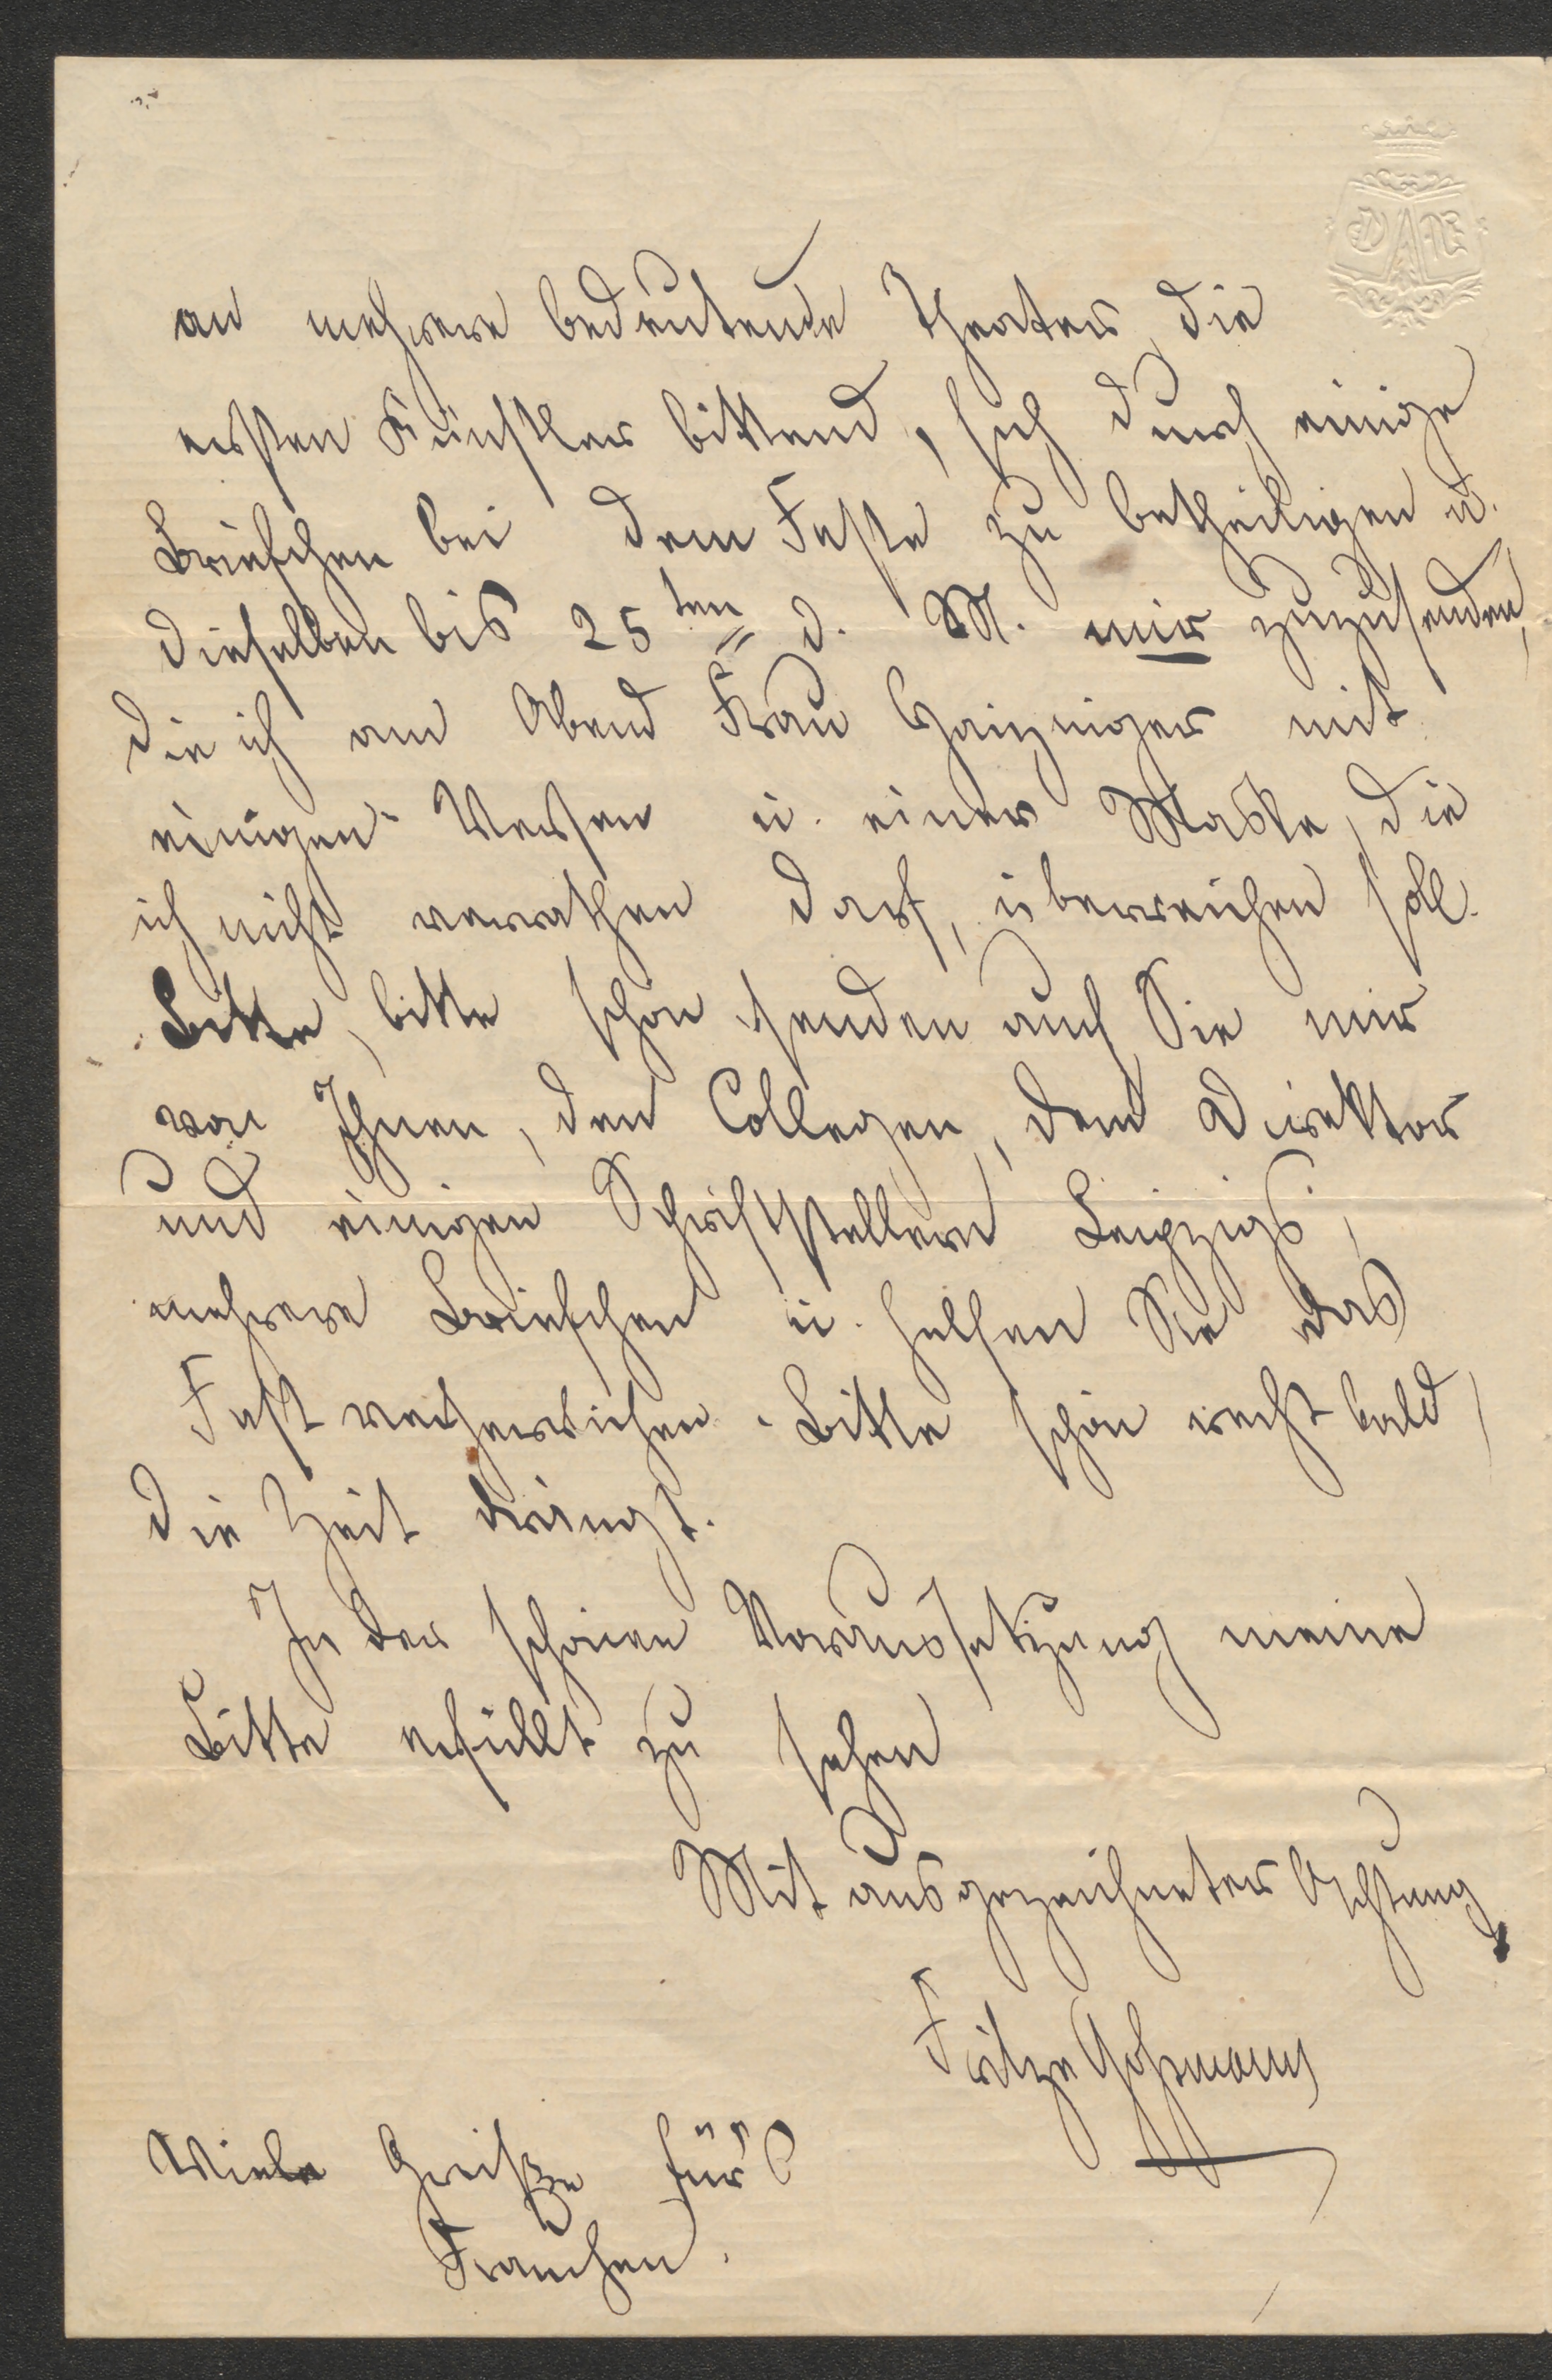 an mehrere bedeutende Theater, die
ersten Künstler bittend, sich durch einige
Briefchen bei dem Feste zu betheiligen u.
dieselben bis 25ten d. M. mir zuzusenden,
die ich am Abend Frau Haizinger mit
einigen Versen u. einer Maske, die
ich nicht verrathen darf, überreichen soll.
Bitte, bitte schön senden auch Sie mir
von Ihnen, den Collegen, dem Direktor
und einigen Schriftstellern Leipzigs,
mehrere Briefchen u. helfen Sie das
Fest verherrlichen. Bitte schön recht bald,
die Zeit drängt.
In der schönen Voraussetzung meine
Bitte erfüllt zu sehen
Mit ausgezeichneter Achtung
Fritze Goßmann
Viele Grüße für's
Frauchen.